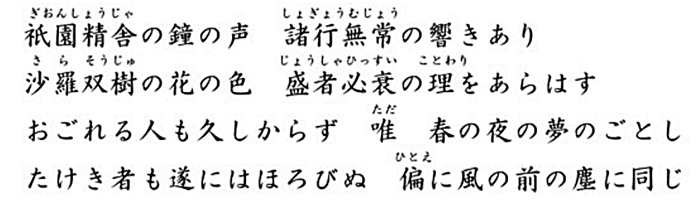 ぎおんしょうじゃ　しょぎょうむじょう
祇園精舎の鐘の声　諸行無常の響きあり
さら　そうじゅ　じょうしゃひっすい　ことわり
沙羅双樹の花の色　盛者必衰の理をあらはす
ただ
おごれる人も久しからず　唯　春の夜の夢のごとし
ひとえ
たけき者も遂にはほろびぬ　偏に風の前の塵に同じ